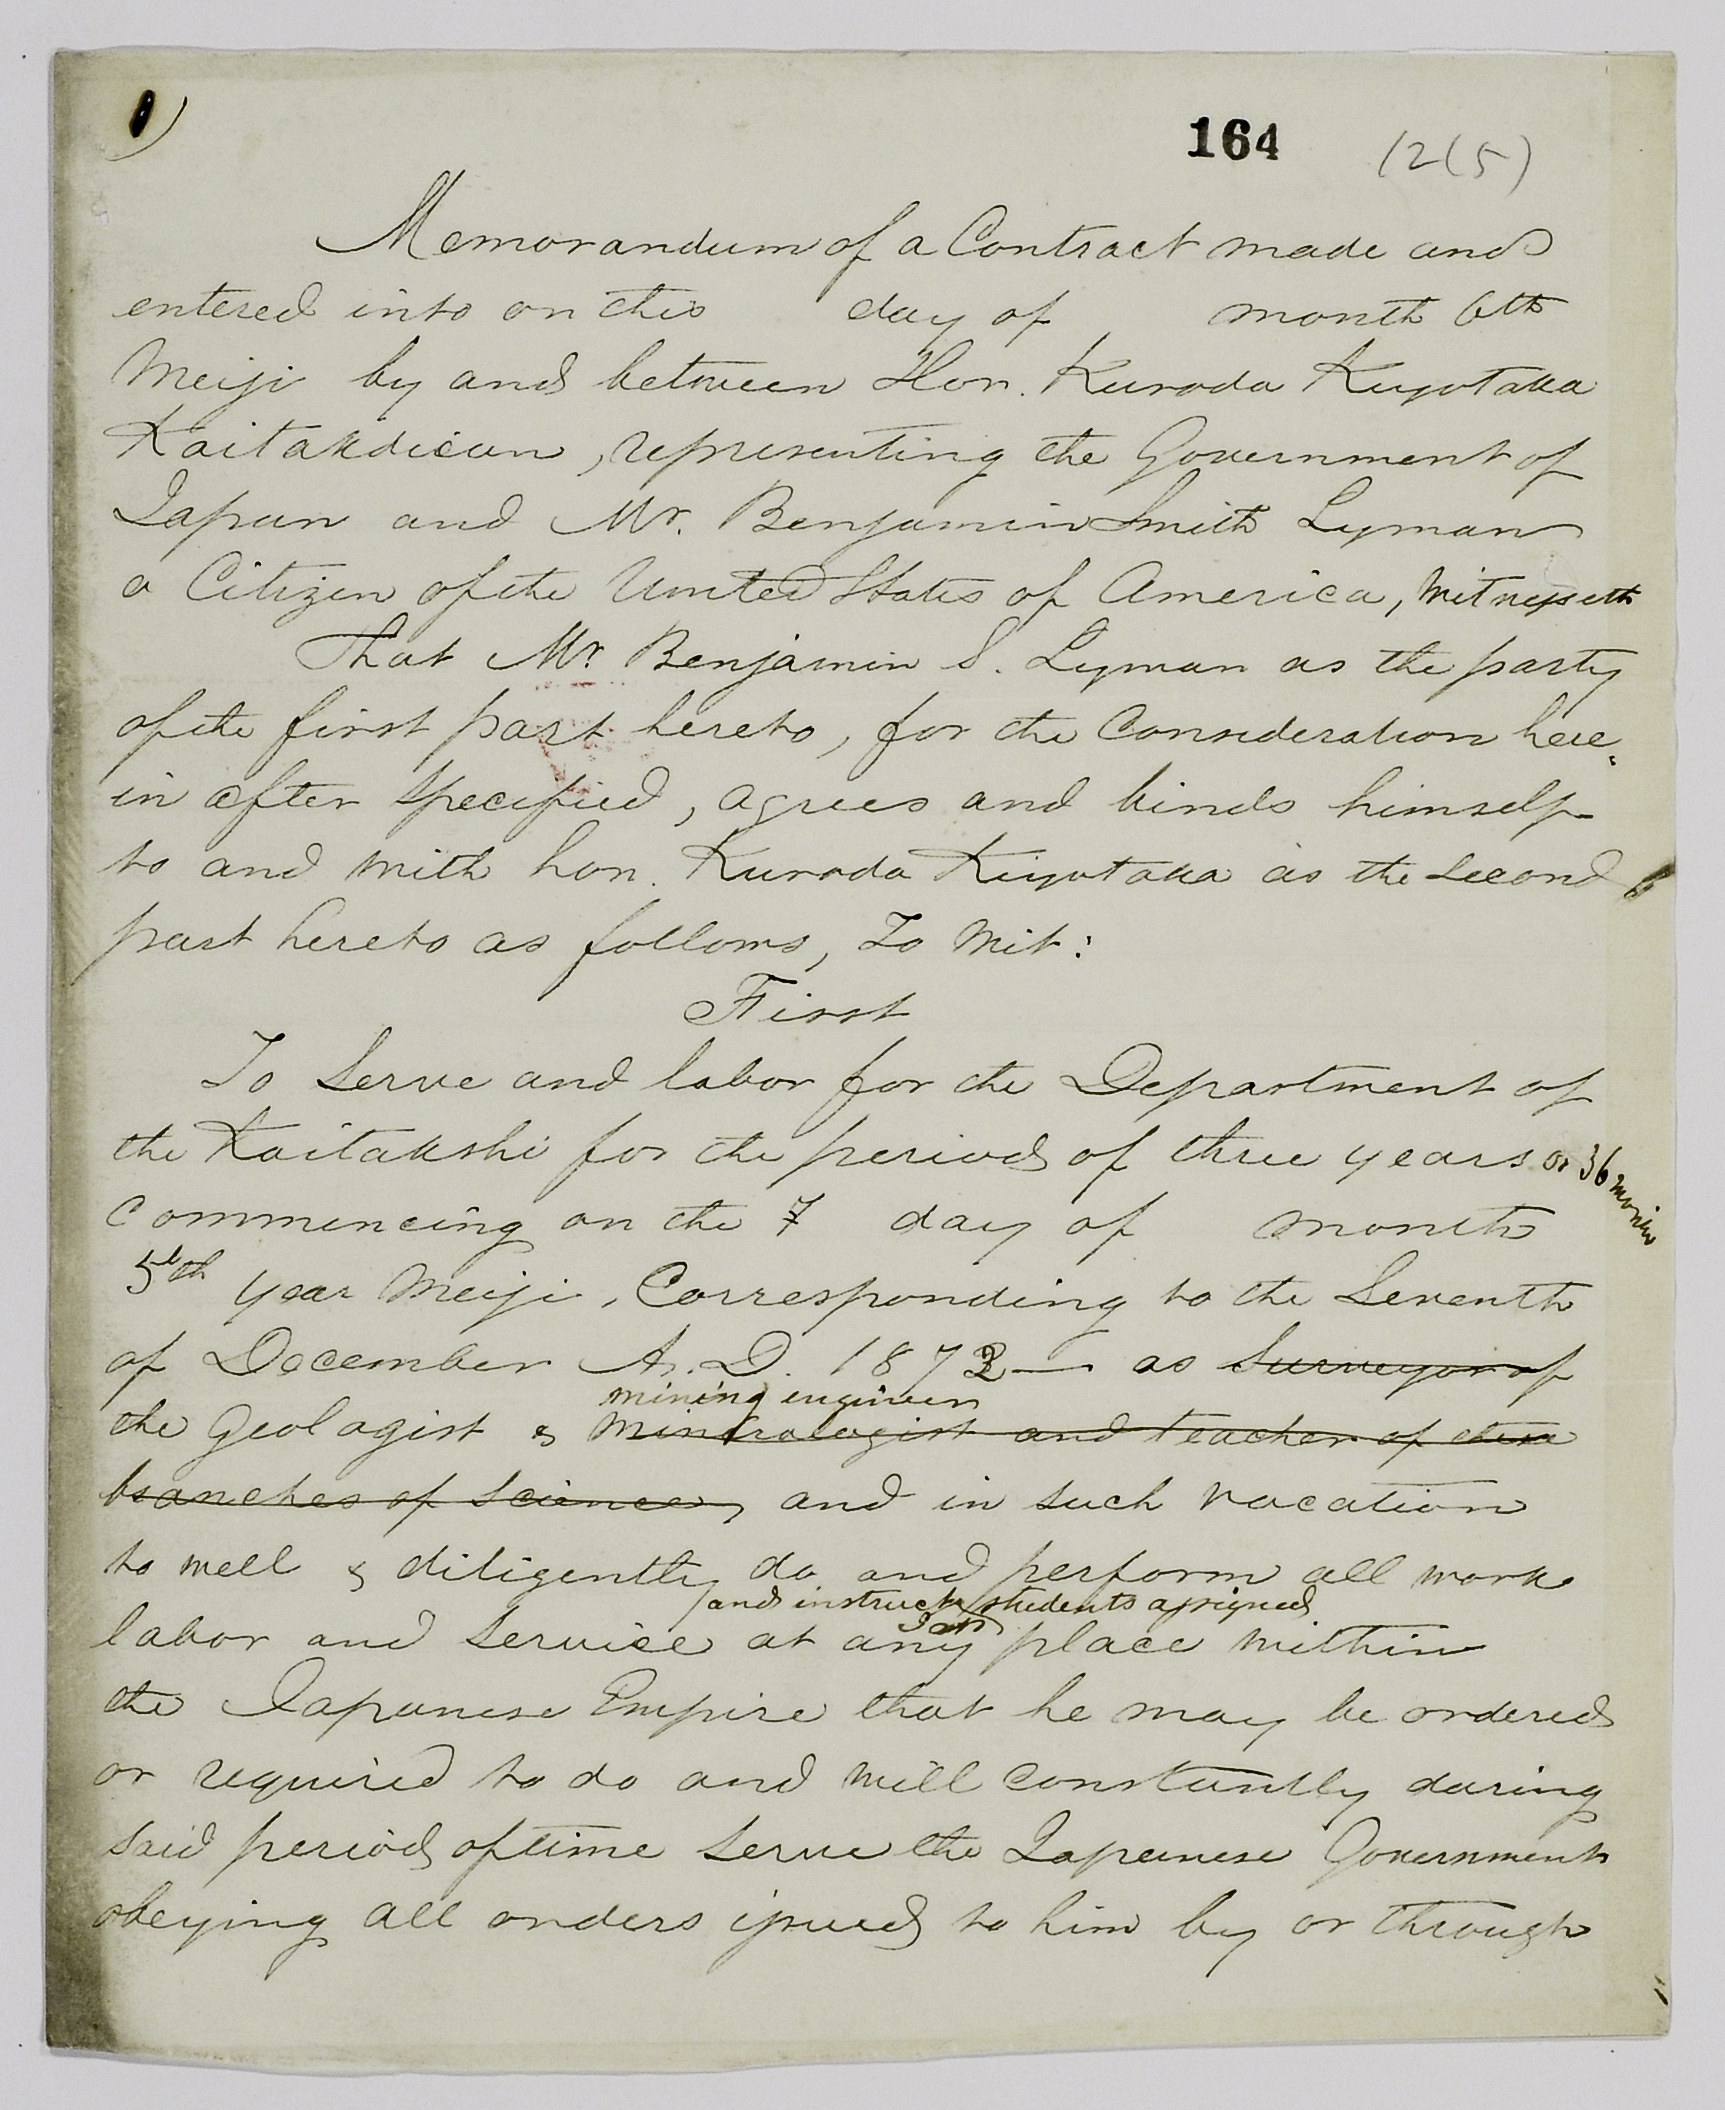 1)
164 12(5)
Memorandum of a Contract made and
entered into on this day of month 6th
Meiji by and between Hon. Kuroda Kuyotaka
Kaitakdicun, representing the Government of
Japan and Mr. Benjamin Smith Lyman
a Citizen of the United States of America, Witnesseth
That Mr. Benjamin S. Lyman as the party
of the first part hereto, for the Consideration here-
in after Specified, agrees and binds himself
to and with hon. Kuroda Kiyotaka as the Second
part hereto as follows, To Wit:
First
To Serve and labor for the Department of
the Kaitakshi for the period of three years or 36 months
Commencing on the 7 day of month
5th year Meiji, Corresponding to the Seventh
of December A.D. 1872 — as Surveyor of
mining engineer
the Geologist & Mineralogist and teacher of these
branches of Science, and in such vacation
to well & diligently do and perform all work
and instruct students assigned
labor and Service at any place within
the Japanese Empire that he may be ordered
or required to do and will constantly during
said period of time serve the Japanese Government
obeying all orders issued to him by or through